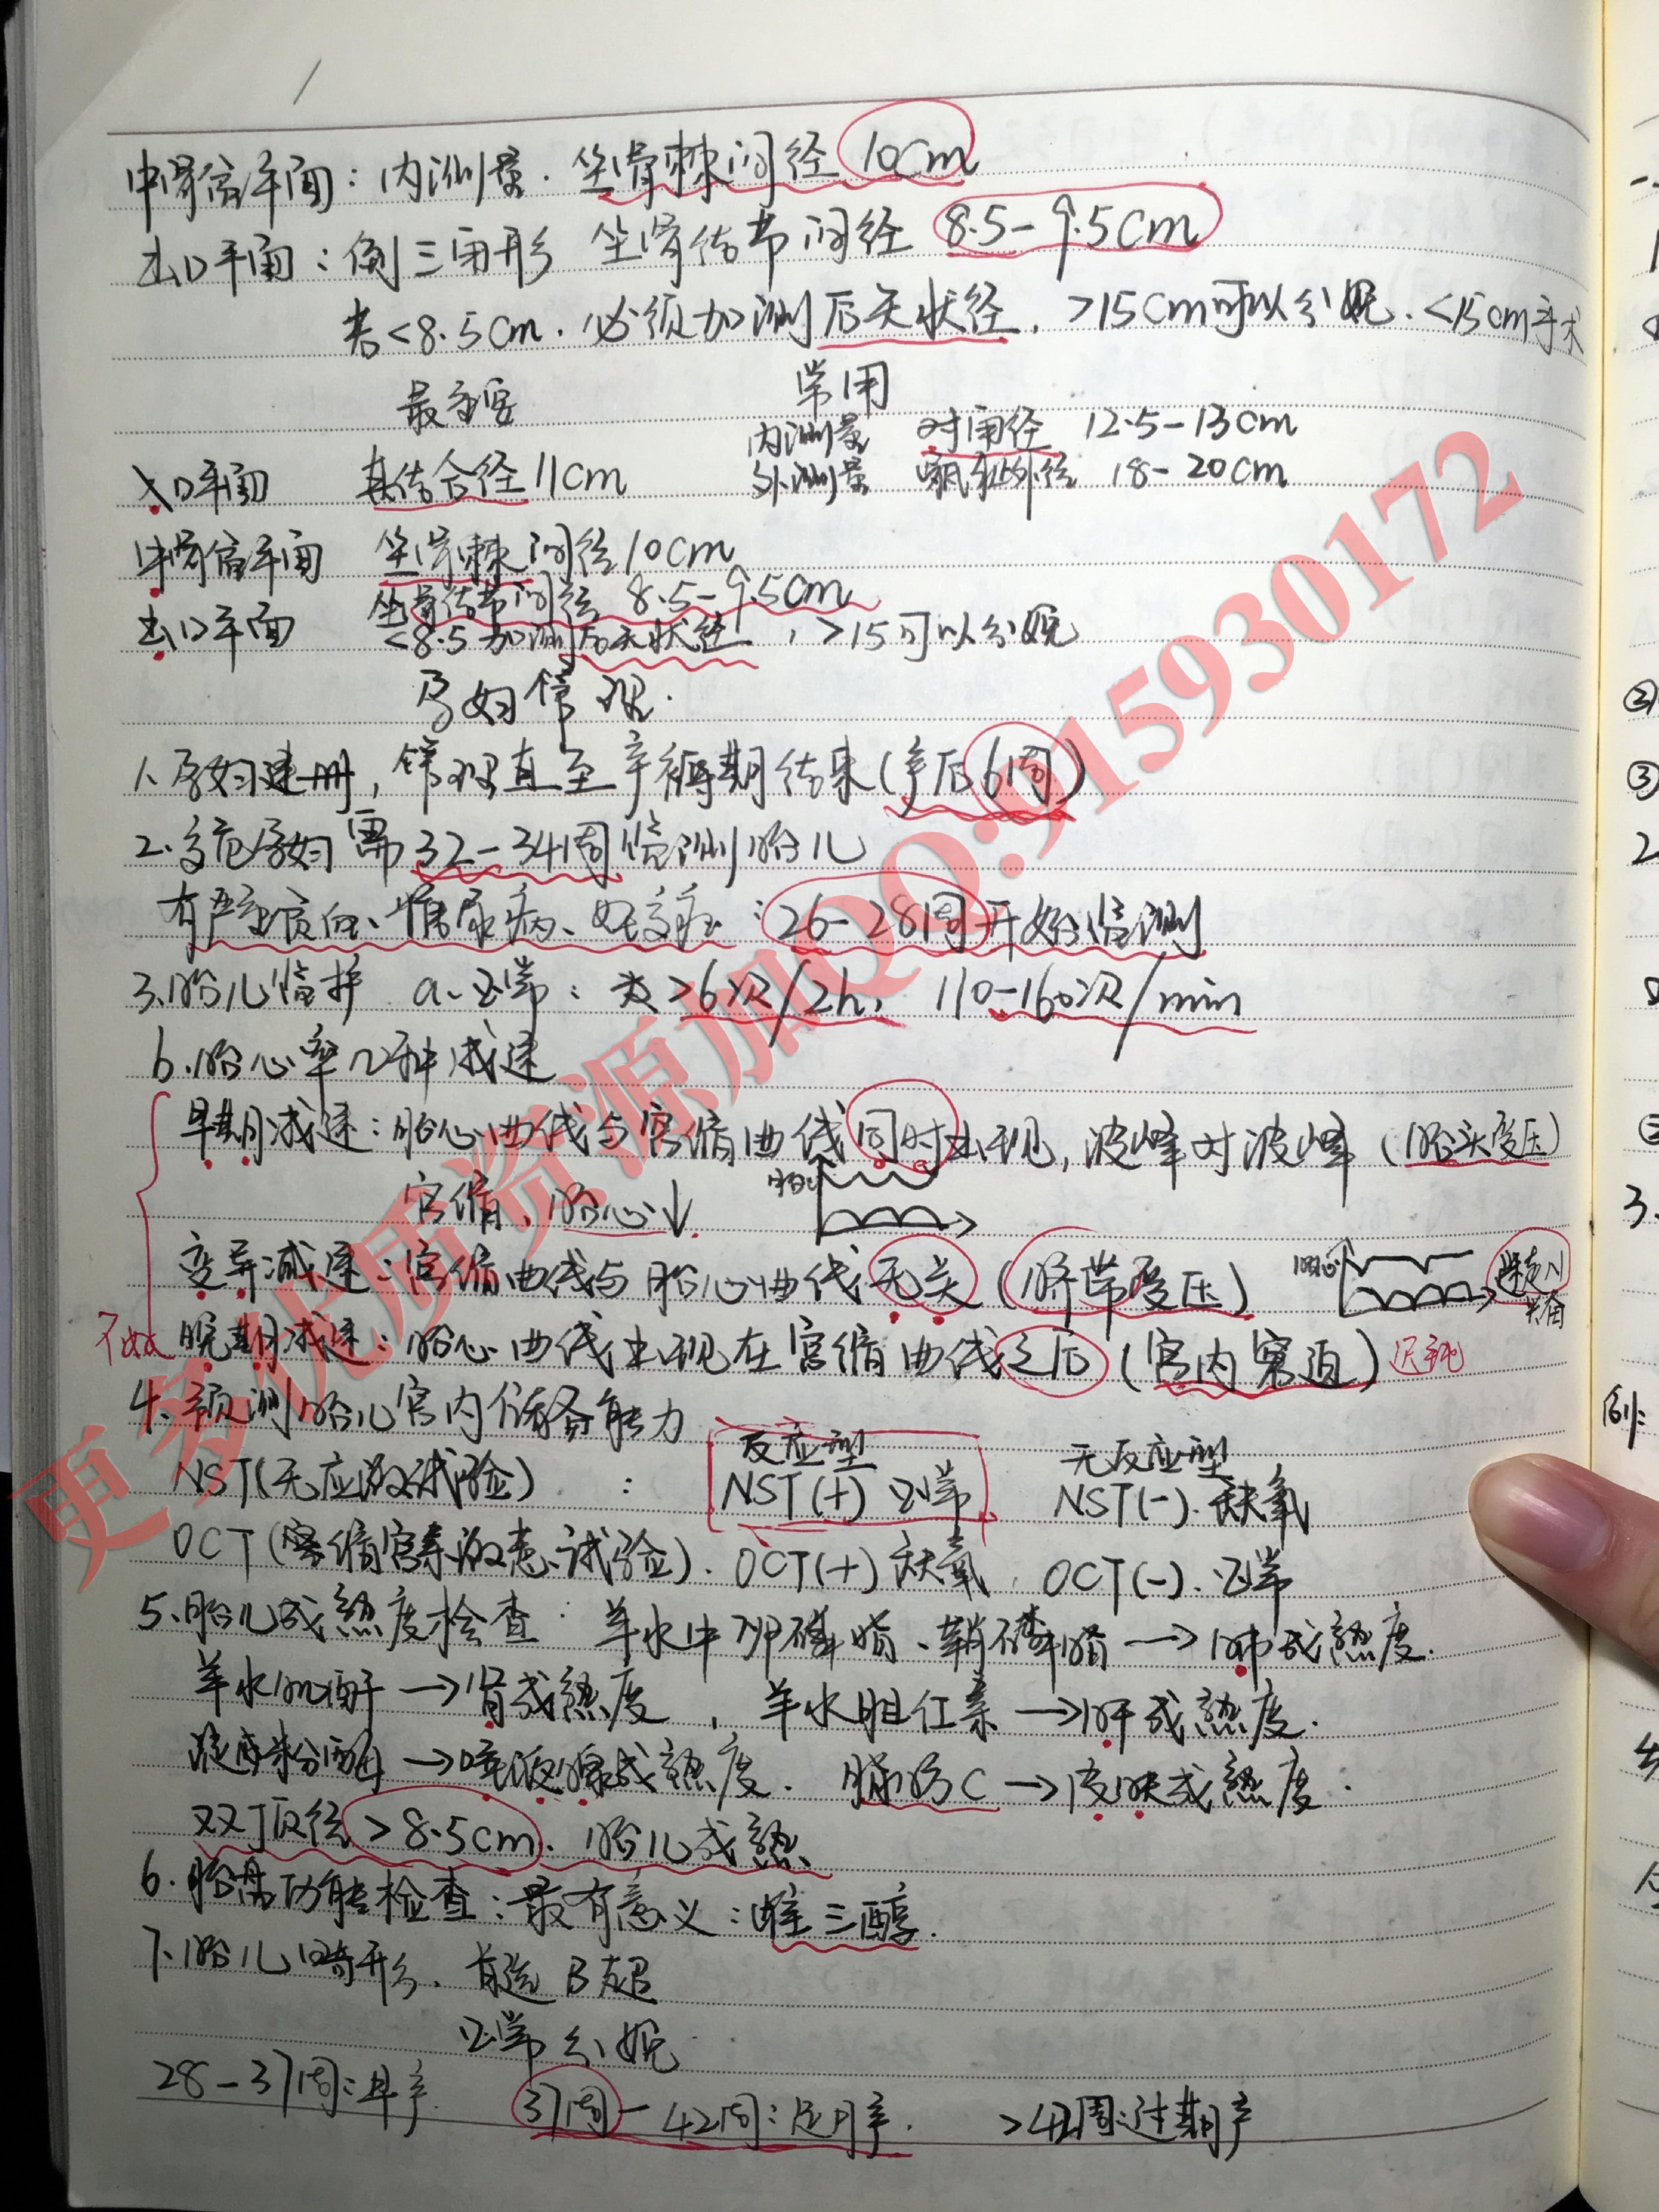 中骨盆平面：内测量．坐骨棘间径 10cm
出口平面：倒三角形 坐骨结节间径 8.5-9.5cm
若<8.5cm．必须加测后矢状径，>15cm可以分娩．<15cm手术
最主要 常用
内测量 对角径 12.5-13cm
入口平面 真结合径11cm 外测量 骶耻外径 18-20cm
中骨盆平面 坐骨棘间径10cm
出口平面 坐骨结节间径 8.5-9.5cm
<8.5加测后矢状径，>15可以分娩
孕妇管理．
1、孕妇建册，管理直至产褥期结束(产后6周)
2、高危孕妇需32-34周监测胎儿
有严重贫血、糖尿病、妊高症：26-28周开始监测
3、胎儿监护 a、正常：>6次/2h，110-160次/min
b、胎心率几种减速
早期减速：胎心曲线与宫缩曲线同时出现，波峰对波峰(胎头受压)
宫缩，胎心↓ 胎心
变异减速：宫缩曲线与胎心曲线无关(脐带受压) 胎心
晚期减速：胎心曲线出现在宫缩曲线之后(宫内窘迫)
4、预测胎儿宫内储备能力
反应型 无反应型
NST(无应激试验)： NST(+)正常 NST(-)．缺氧
OCT(宫缩素激惹试验)．OCT(+)缺氧．OCT(-)．正常
5、胎儿成熟度检查：羊水中卵磷脂、鞘磷脂→肺成熟度．
羊水肌酐→肾成熟度，羊水胆红素→肝成熟度．
淀粉酶→唾液腺成熟度．脂肪C→皮肤成熟度．
双顶径>8.5cm．胎儿成熟
6．胎盘功能检查：最有意义：雌三醇．
7、胎儿畸形．首选B超
正常分娩
28-37周：早产． 37周-42周：足月产． >42周：过期产
更多优质资源加QQ:915930172